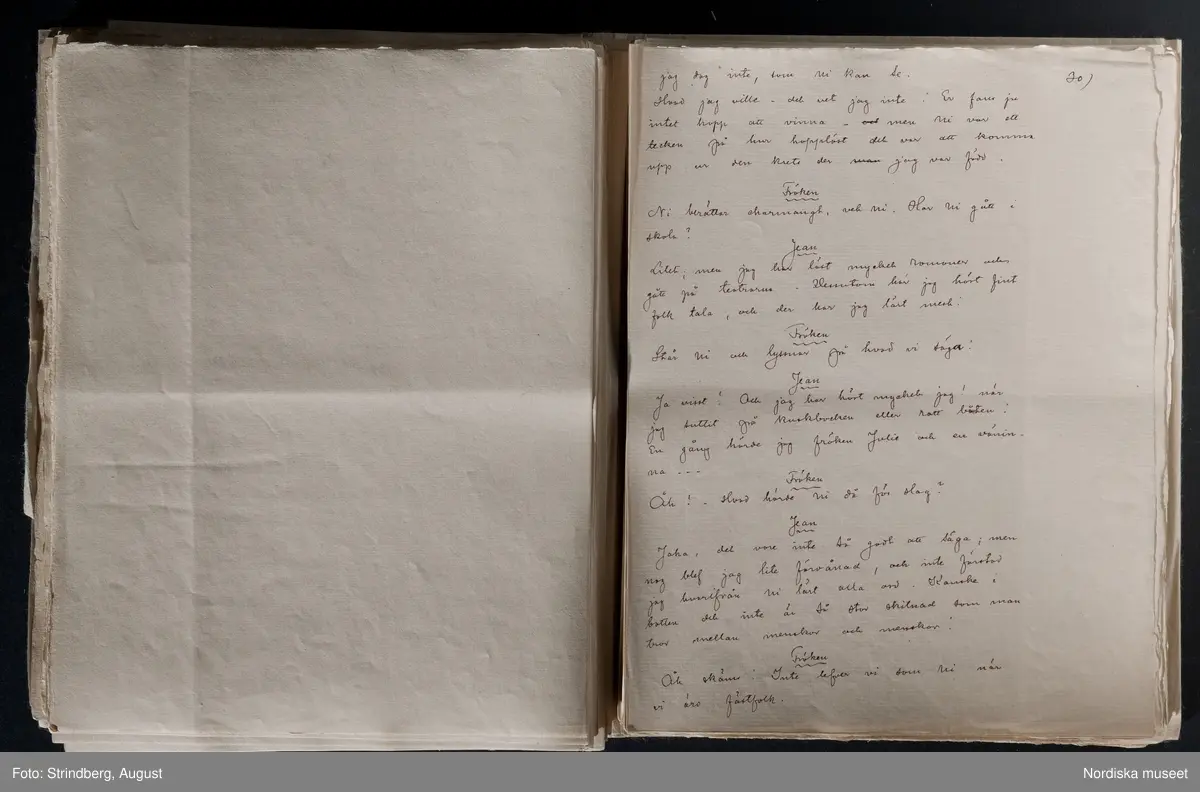 jag dog inte, som Ni kan se. 30)
Hvad jag ville – det vet jag inte! Er fans ju
intet hopp att vinna – men Ni var ett
tecken på hur hopplöst det var att komma
upp ur den krets der jag var född.
Fröken
Ni berättar charmangt, vet ni. Har Ni gått i
skola?
Jean
Litet; men jag har läst mycket romaner och
gått på teatrarna. Dessutom har jag hört fint
folk tala, och der har jag lärt mest!
Fröken
Står Ni och lyssnar på hvad vi säga!
Jean
Ja visst! Och jag har hört mycket jag! när
jag suttit på kuskbocken eller rott båten!
En gång hörde jag fröken Julie och en vänin-
na ---
Fröken
Åh! – Hvad hörde Ni då för slag?
Jean
Jaha, det vore inte så godt att säga; men
nog blef jag lite förvånad, och inte förstod
jag hvarifrån Ni lärt alla ord. Kanske i
botten och inte är så stor skilnad som man
tror mellan menskor och menskor!
Fröken
Åh skäms! Inte lefver vi som Ni när
vi äro fästfolk.
Foto: Strindberg, August
Nordiska museet